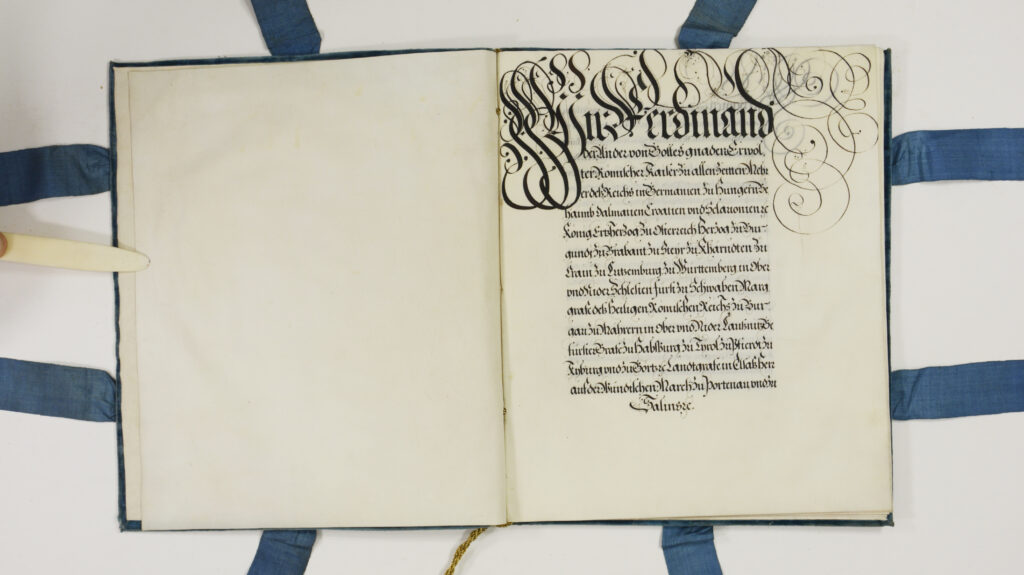 Wir Ferdinand
der Ander von Gottes gnaden Erwöl,
ter Römischer Kaiser zu allen Zeitten Meh,
rer des Reichs in Germanien zu Hungern Be
haimb Dalmatien Croatien und Sclavonien ꝛc
König Ertzherzog zu Österreich Herzog zu Bur-
gundt zu Brabant zu Steyr zu Kharndten zu
Crain zu Lutzemburg zu Württemberg in Ober
und Nider Schlesien Fürst zu Schwaben Marg
grafe des Heiligen Römischen Reichs zu Bur-
gaw zu Mährern in Ober und Nider Laußnitz Ge
fürster Grafe zu Habspurg zu Tyrol zu Pfierdt zu
Kyburg und zu Görtz ꝛc Landtgrafe in Elsaß Herr
auf der Windischen March zu Portenau und zu
Salins ꝛc.